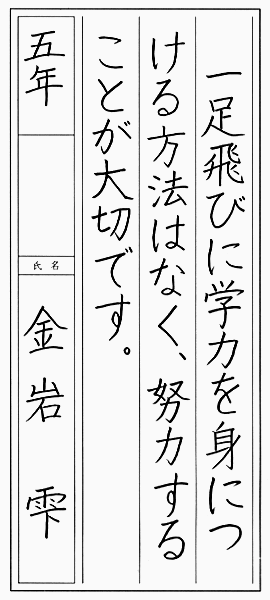 一足飛びに学力を身につ
ける方法はなく、努力する
ことが大切です。
五年
氏名
金岩 雫